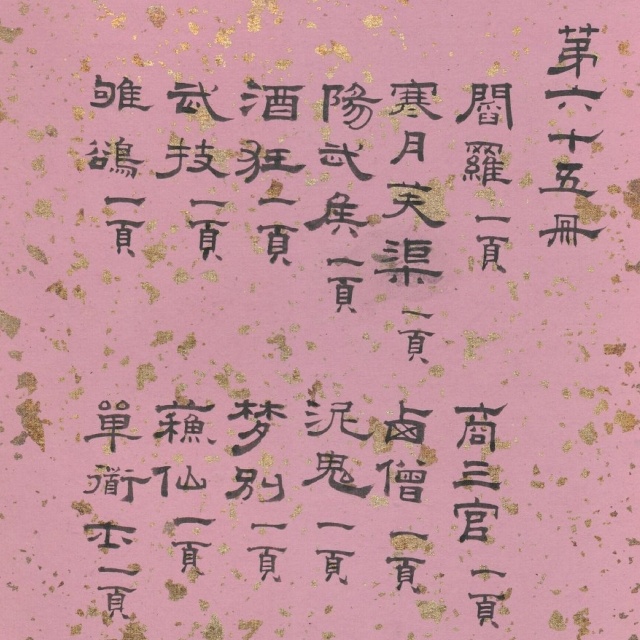 第六十五冊
閻羅一頁
寒月芙渠一頁
陽武侯一頁
酒狂一頁
武技一頁
雊鵒一頁
商三官一頁
卤僧一頁
泥鬼一頁
梦别一頁
蘓仙一頁
單衟士一頁